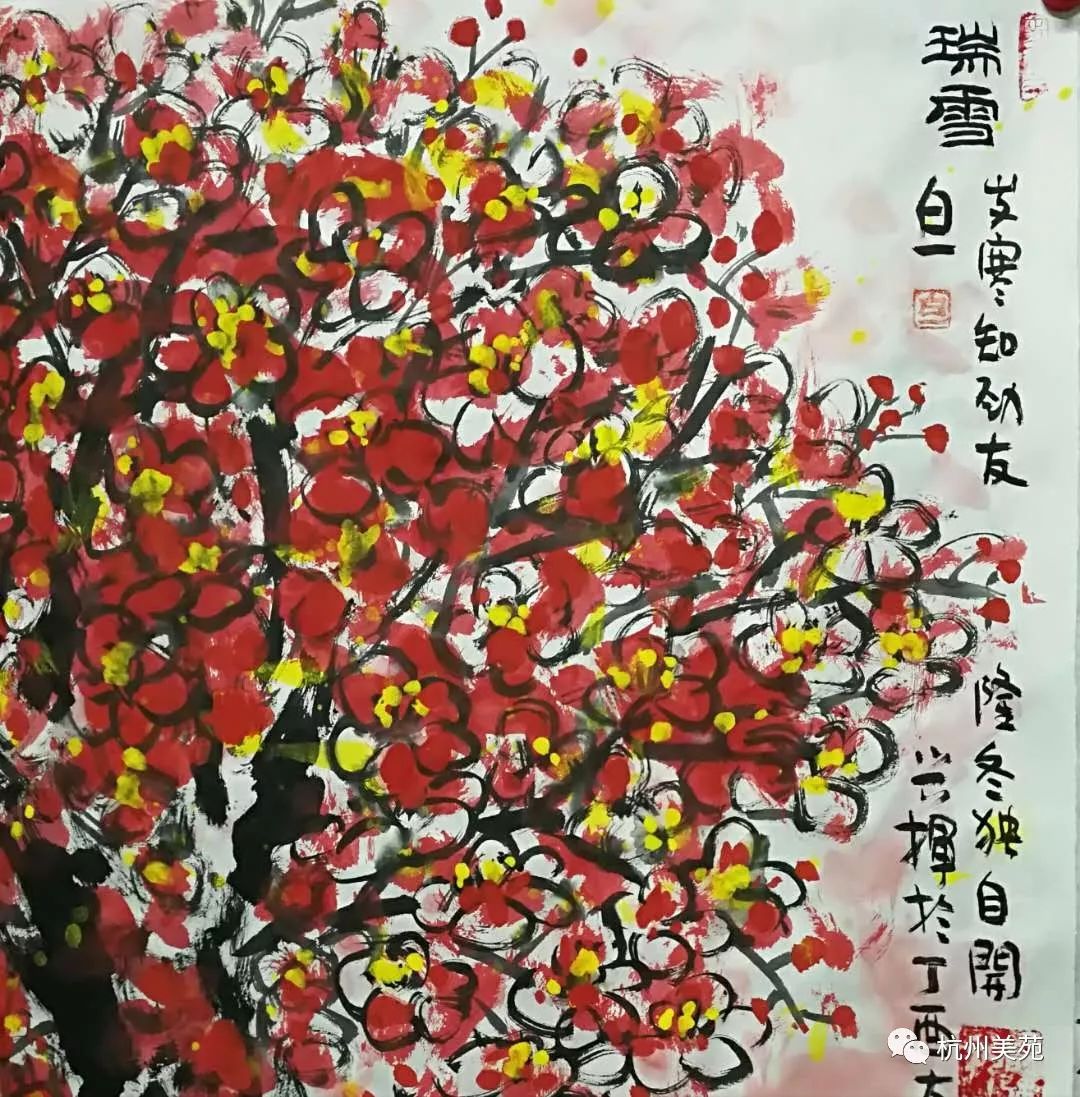 瑞雪
岁寒知劲友
隆冬独自開
白一
兴揮於丁酉
杭州美苑